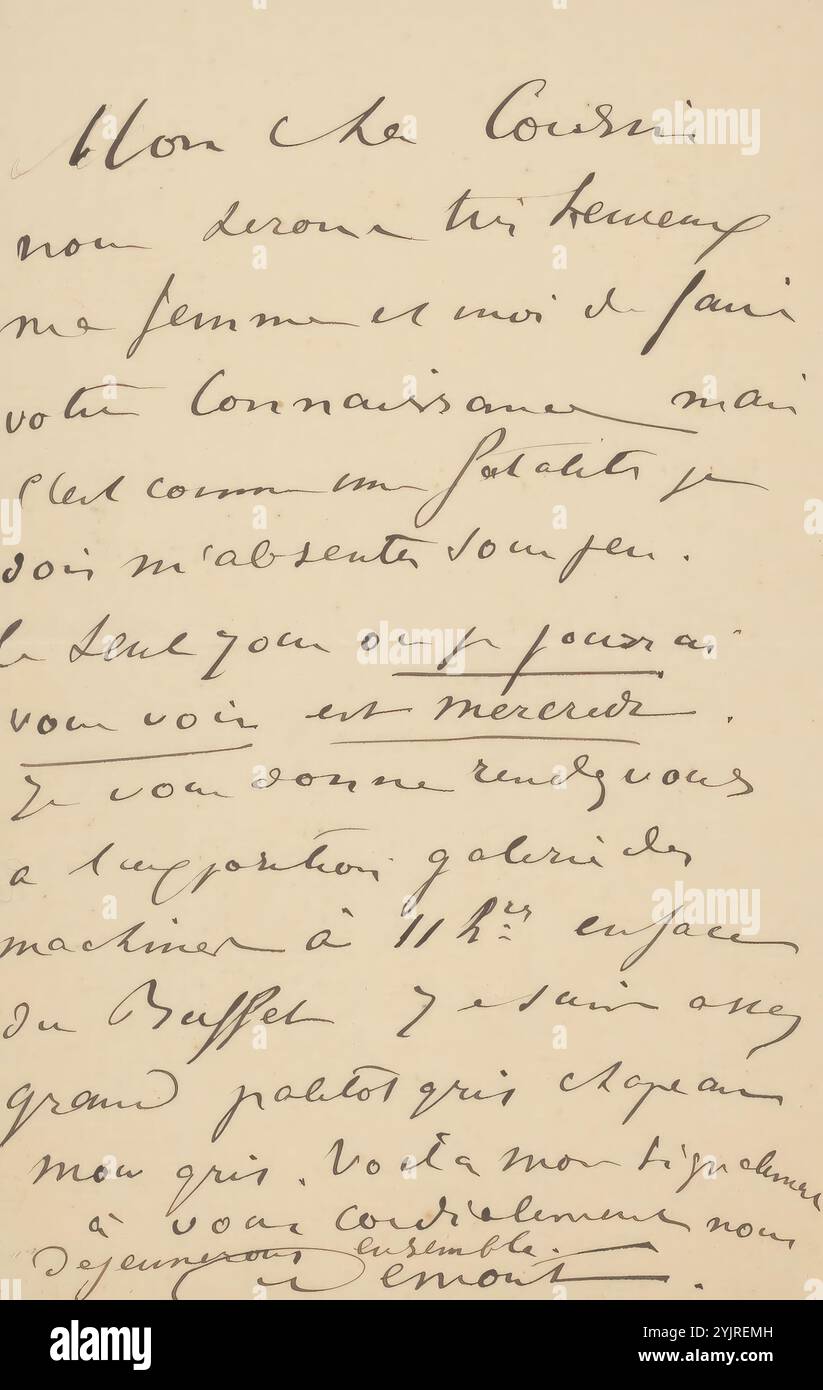 Mon cher Cousin
nous serons très heureux
ma femme et moi de faire
votre connaissance mais
c'est comme une fatalité je
dois m'absenter sous peu.
le seul jour ou je pourrai
vous voir est mercredi.
je vous donne rendez vous
a l'exposition galerie des
machines à 11 hres en face
du Buffet je suis assez
grand paletot gris chapeau
mou gris. Voila mon signalement
à vous cordialement nous
dejeunerons ensemble.
Demont.
alamy
Image ID: 2YJREMH
www.alamy.com